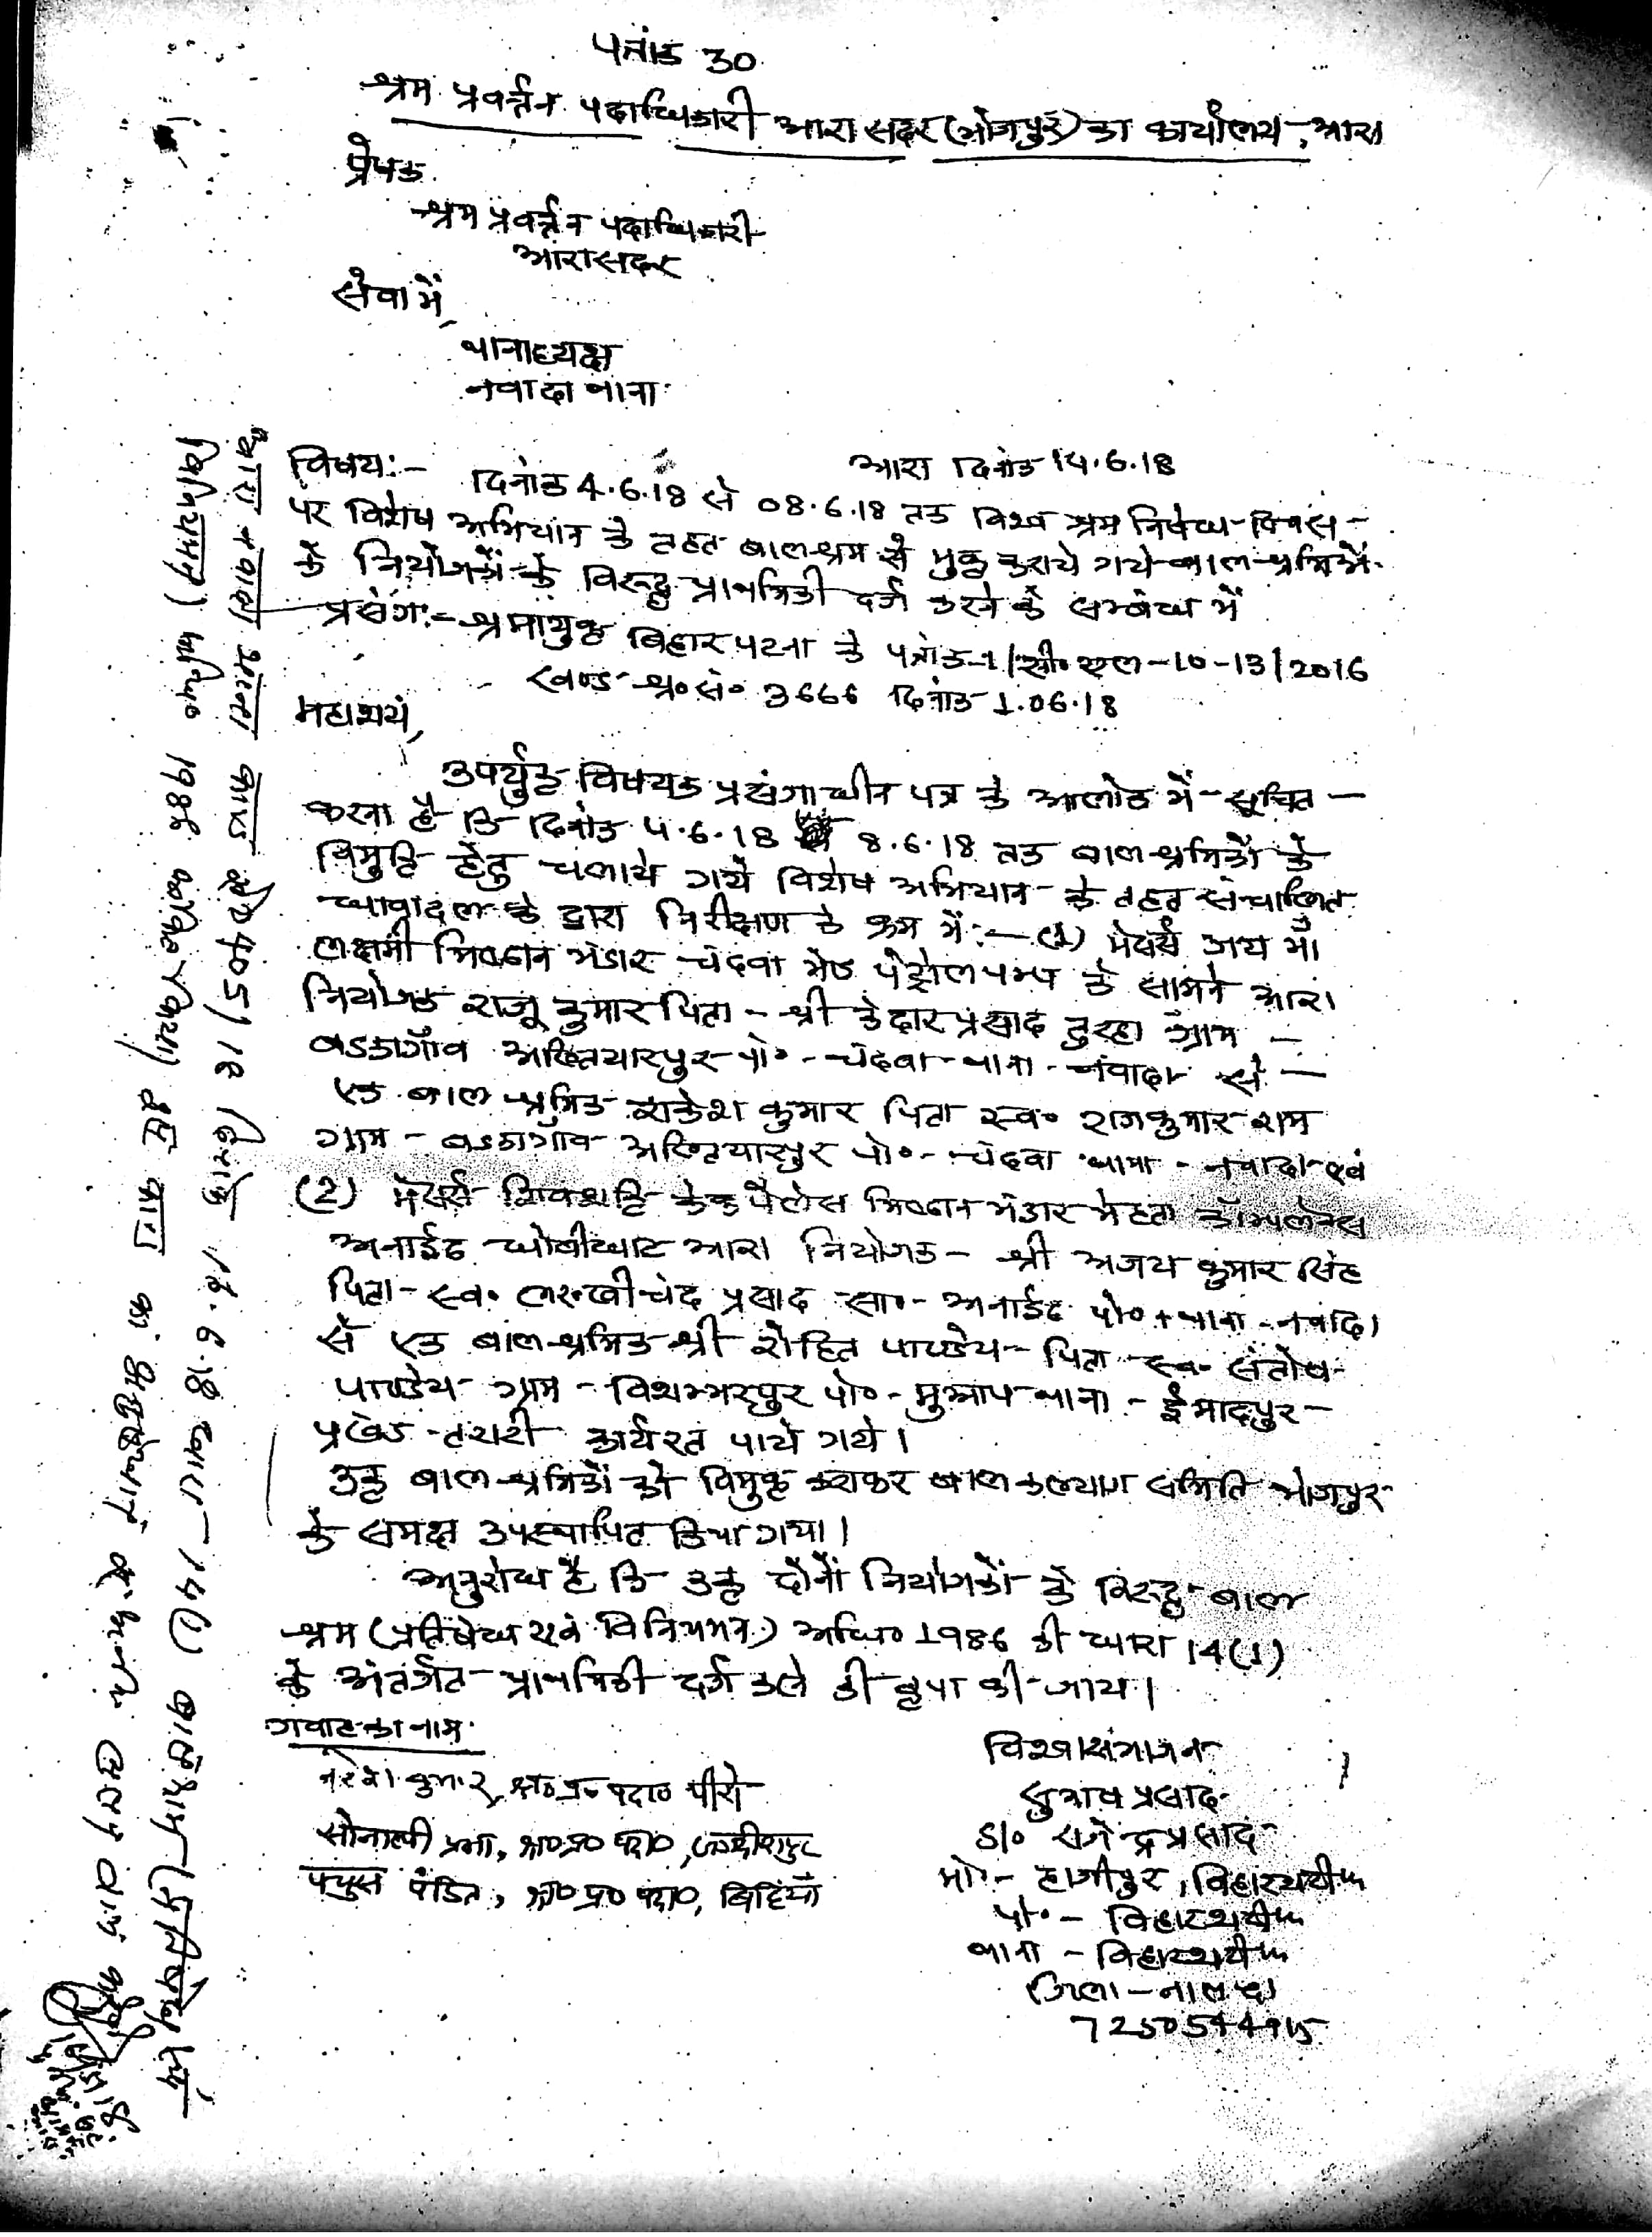 पत्रांक 30
श्रम प्रवर्त्तन पदाधिकारी आरा सदर (भोजपुर) का कार्यालय, आरा
प्रेषक
श्रम प्रवर्त्तन पदाधिकारी
आरा सदर
सेवा में,
थानाध्यक्ष
नवादा थाना
आरा दिनांक 14.6.18
विषय:- दिनांक 4.6.18 से 08.6.18 तक विश्व श्रम निषेध दिवस
पर विशेष अभियान के तहत बाल श्रम से मुक्त कराये गये बाल श्रमिकों
के नियोजकों के विरूद्ध प्राथमिकी दर्ज करने के सम्बंध में
प्रसंग:- श्रमायुक्त बिहार पटना के पत्रांक-1/सी० एल-10-13/2016
खण्ड श्र० सं० 3666 दिनांक 1.06.18
महाशय,
उपर्युक्त विषयक प्रसंगाधीन पत्र के आलोक में सूचित
करना है कि दिनांक 4.6.18 8.6.18 तक बाल श्रमिकों के
विमुक्ति हेतु चलाये गये विशेष अभियान के तहत संचालित
धावादल के द्वारा निरीक्षण के क्रम में:- (1) मेसर्स जय माँ
लक्ष्मी मिष्ठान भंडार चंदवा मोड पेट्रोल पम्प के सामने आरा
नियोजक राजू कुमार पिता - श्री केदार प्रसाद तुरहा ग्राम -
बडकागाँव अख्तियारपुर पो० - चंदवा थाना - नवादा से -
एक बाल श्रमिक राकेश कुमार पिता स्व० राजकुमार राम
ग्राम - बडकागाँव अख्तियारपुर पो० - चंदवा थाना - नवादा एवं
(2) मेसर्स शिवशक्ति केक पैलेस मिष्ठान भंडार मेहता कॉम्पलेक्स
अनाईठ धोबीघाट आरा नियोजक - श्री अजय कुमार सिंह
पिता - स्व० लख्खीचंद प्रसाद सा० - अनाईठ पो० + थाना - नवादा
से एक बाल श्रमिक श्री रोहित पाण्डेय पिता स्व० संतोष
पाण्डेय ग्राम - विशम्भरपुर पो० - मुआप थाना - ईमादपुर -
प्रखंड - तरारी कार्यरत पाये गये।
उक्त बाल श्रमिकों को विमुक्त कराकर बाल कल्याण समिति भोजपुर
के समक्ष उपस्थापित किया गया।
अनुरोध है कि उक्त दोनों नियोजकों के विरूद्ध बाल
श्रम (प्रतिषेध एवं विनियमन) अधि० 1986 की धारा 14(1)
के अंतर्गत प्राथमिकी दर्ज करने की कृपा की जाय।
गवाह का नाम
नरेश कुमार, श्र० प्र० पदा० पीरो
सोनाली प्रभा, श्र० प्र० पदा०, जगदीशपुर
पंडित, श्र० प्र० पदा०, बिहियाँ
विश्वासभाजन
सुभाष प्रसाद
S/० राजेन्द्र प्रसाद
मो० - हाजीपुर, बिहारशरीफ
पो० - बिहारशरीफ
थाना - बिहारशरीफ
जिला - नालंदा
आरा नवादा थाना काण्ड सं० 405/18 दिनांक 16.6.18 धारा - 14(1) बाल श्रम (प्रतिषेध एवं
विनियमन) अधि० 1986